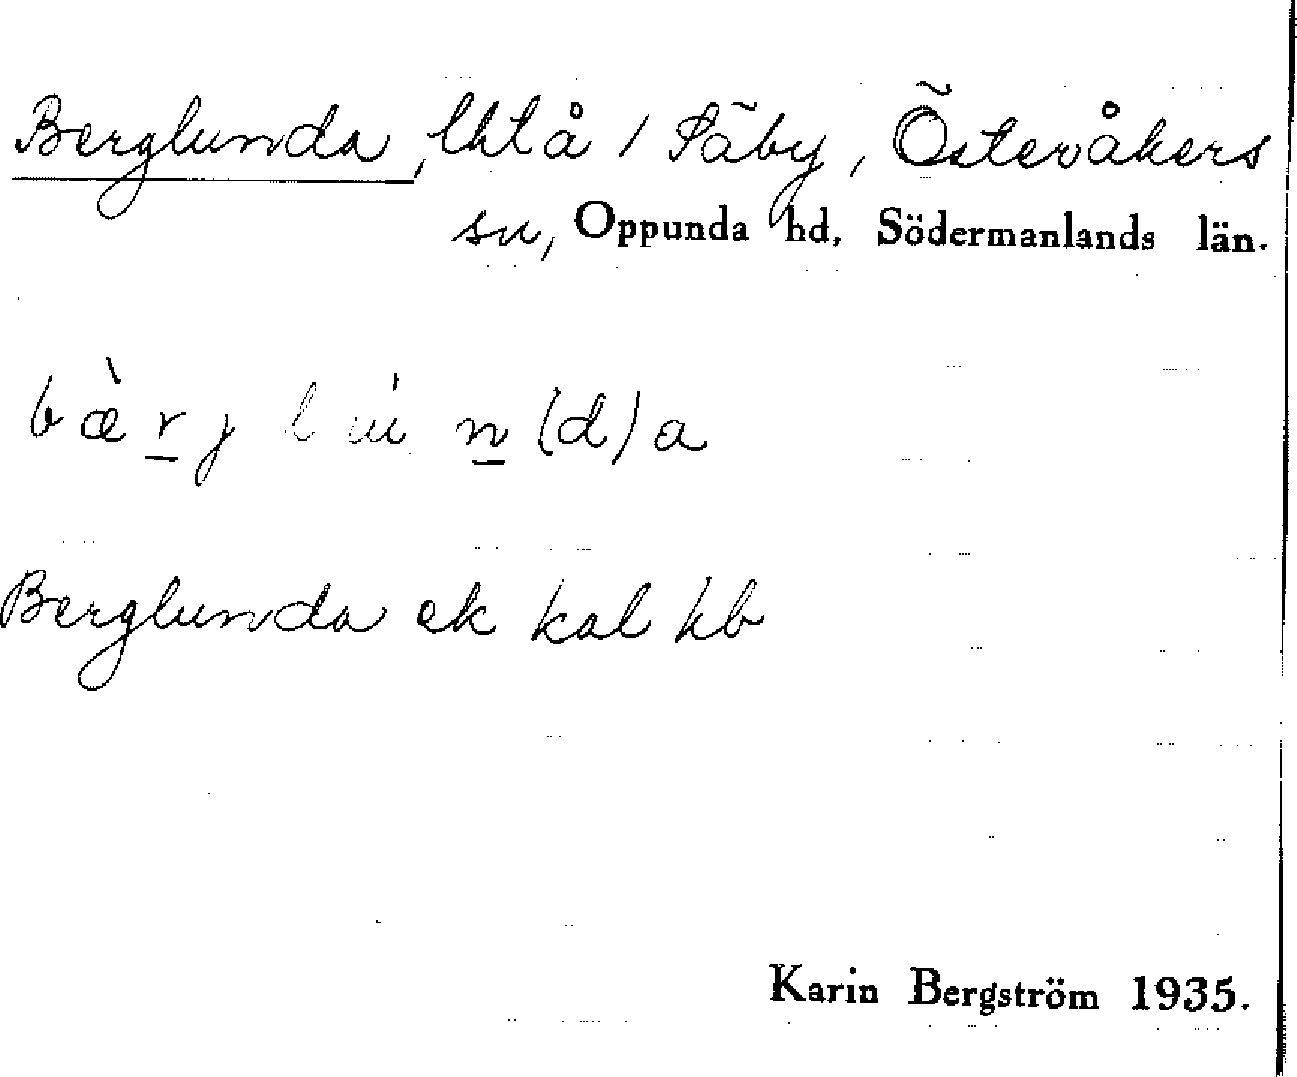 Berglunda, lht å / Säby, Östevåkers
sn, Oppunda hd, Södermanlands län.
bæ̀r̲j lu̇n̲(d)a
Berglunda ek kal hb
Karin Bergström 1935.